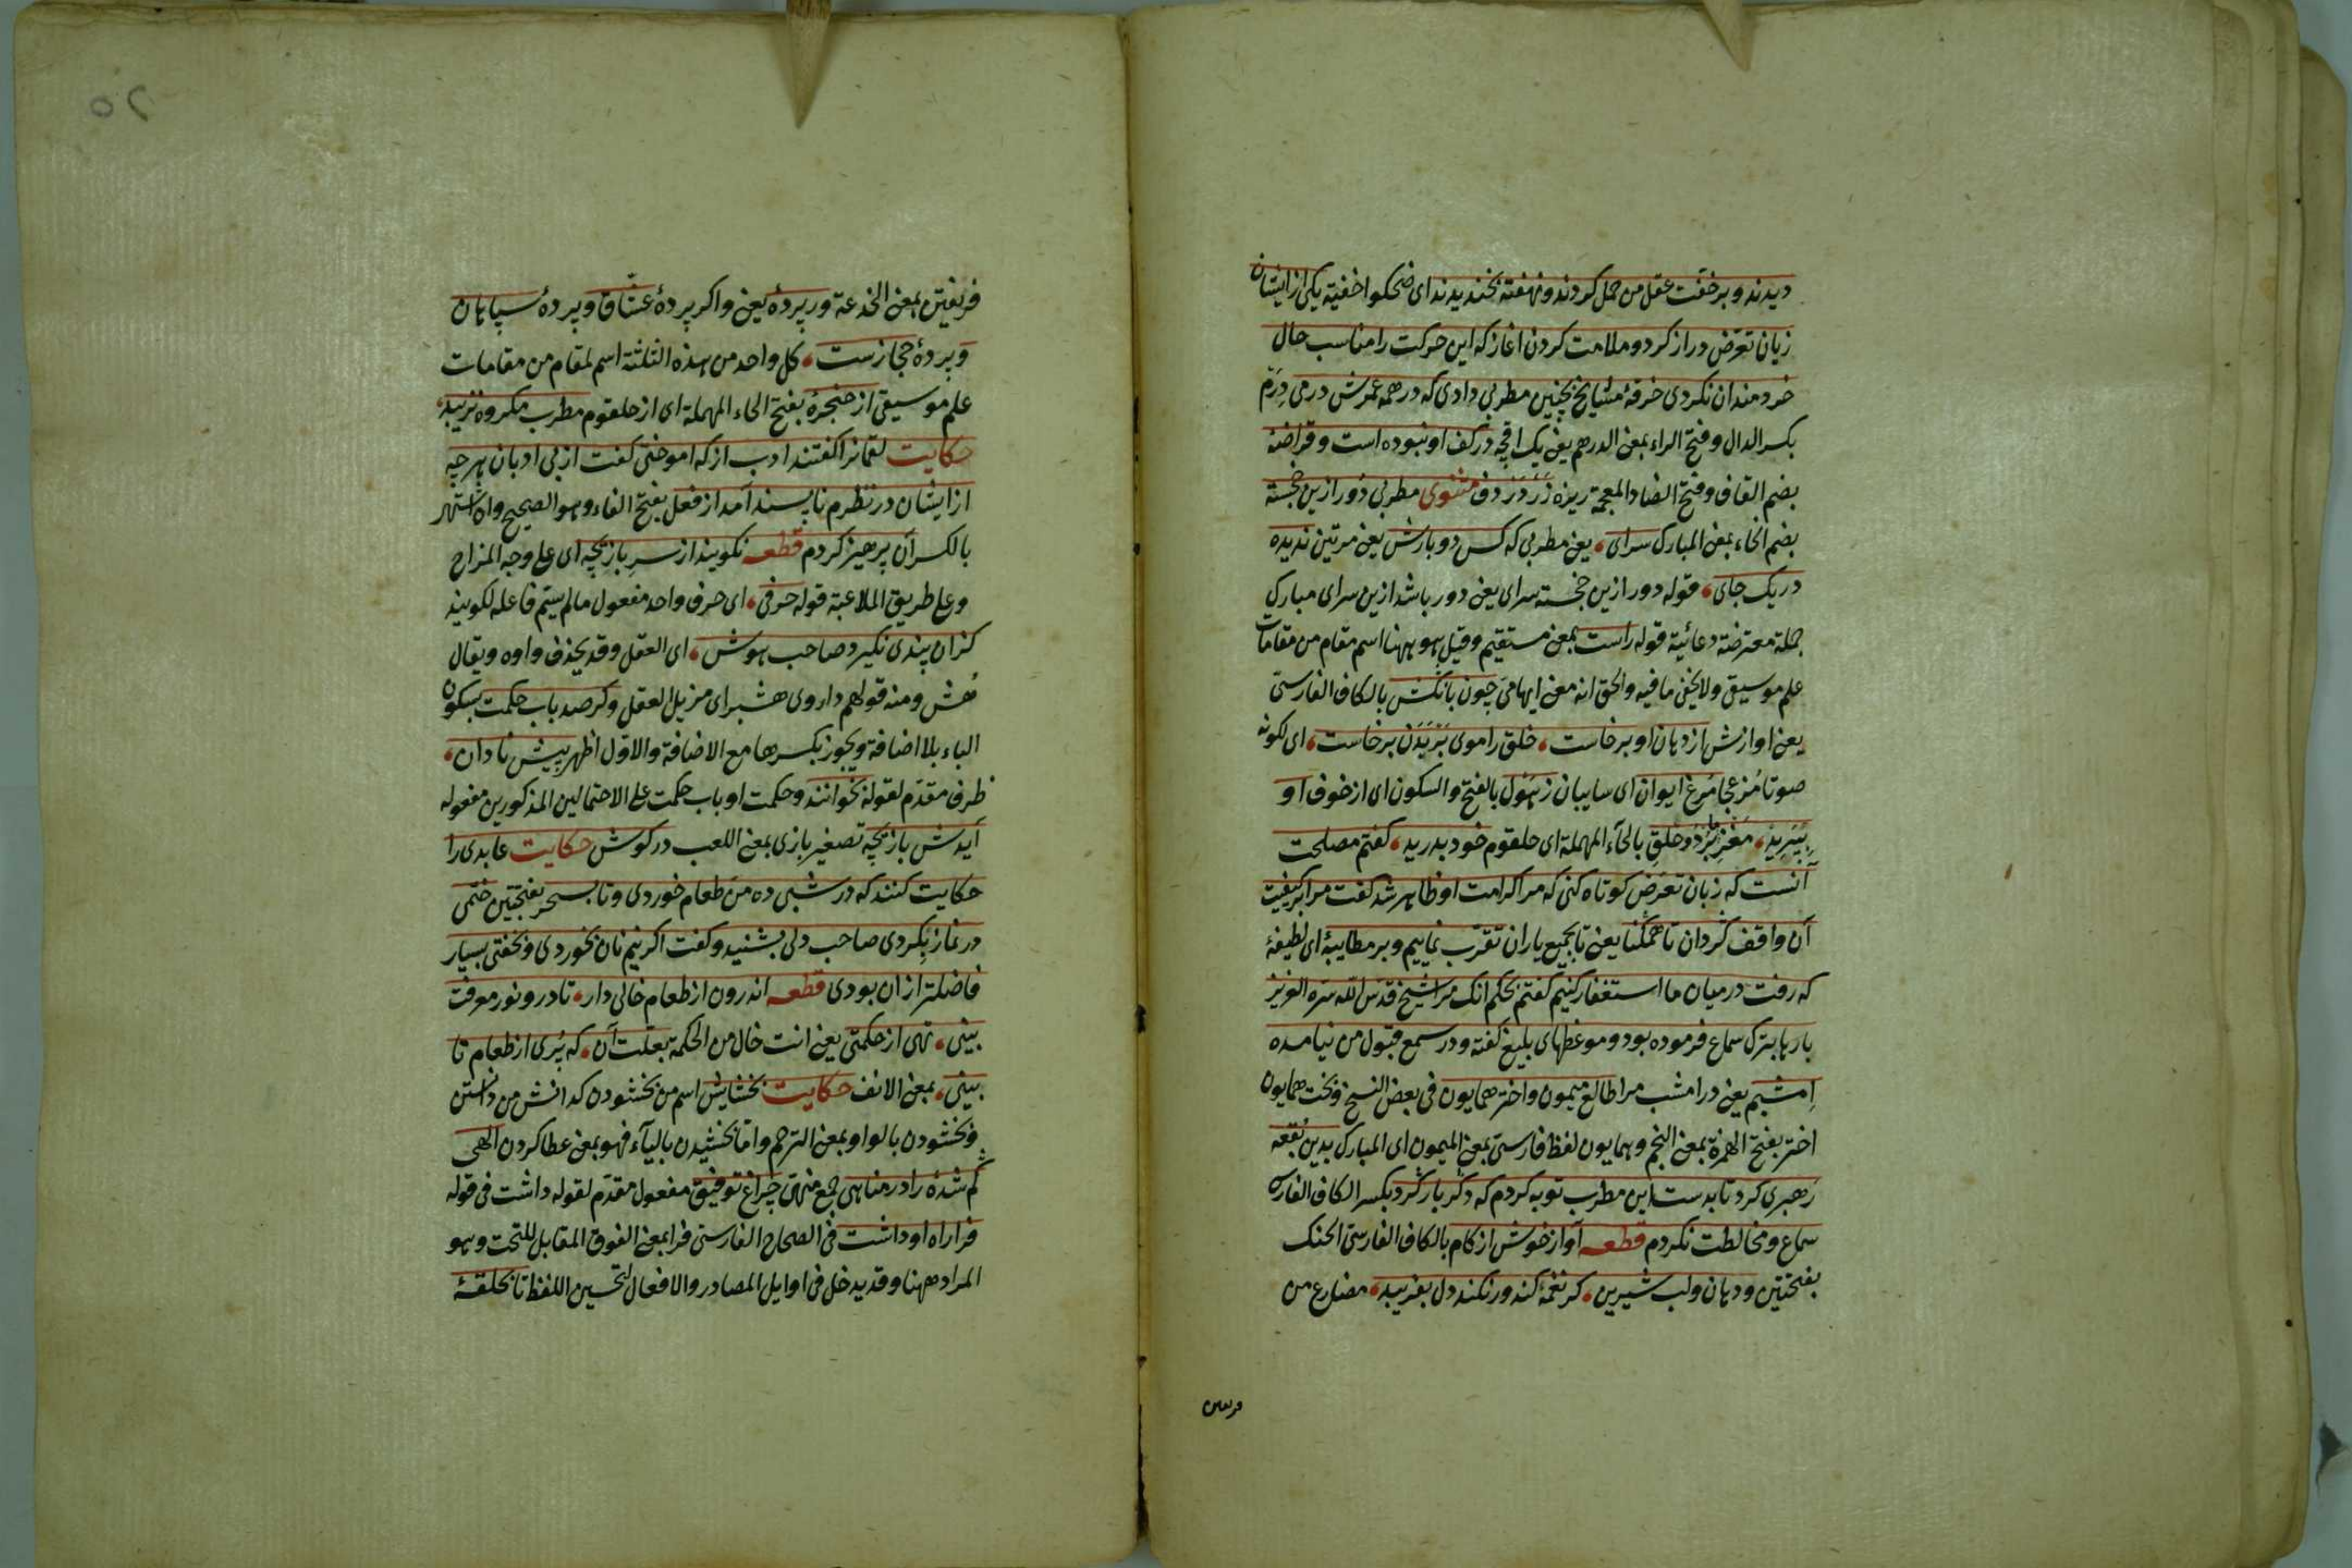 دیدند و بر خفت عقل من حمل کردند و نهفته بخندیدند ای ضحکوا خفیة یکی از ایشان
زبان تعرّض دراز کرد و ملامت کردن اغاز که این حرکت را مناسب حال
خردمندان نکردی خرقهٔ مشایخ بچنین مطربی دادی که در همه عمرش درمی دِرَم
بکسر الدال و فتح الراء بمعنی الدرهم یعنی یک اقچه در کف او نبوده است و قراضه
بضم القاف و فتح الضاد المعجمة ریزهٔ زَر دَر دف مثنوی مطربی دور ازین خجسته
بضم الخاء بمعنی المبارک سرای یعنی مطربی که کس دو بارش یعنی مرتین ندیده
در یک جای قوله دور ازین خجسته سرای یعنی دور باشد ازین سرای مبارک
جملة معترضة دعائیة قوله راست بمعنی مستقیم و قیل هو ههنا اسم مقام من مقامات
علم موسیقی ولا یخفی ما فیه والحق انه معنی ایهامی چون بانکش بالکاف الفارسی
یعنی اوازش از دهان او برخاست خلق را موی بر بدن برخاست ای لکونه
صوتا مزعجا مرغ ایوان ای سایبان ز هول بالفتح والسکون ای از خوف او
بپرید مغز ما برد و حلق بالحاء المهملة ای حلقوم خود بدرید کفتم مصلحت
آنست که زبان تعرّض کوتاه کنی که مرا کرامت او ظاهر شد کفت مرا بر کیفیت
آن واقف کردان تا همکنا یعنی تا بجمیع یاران تقرّب نماییم و بر مطایبهٔ ای لطیفهٔ
که رفت درمیان ما استغفار کنیم کفتم بحکم انک مرا شیخ قدس الله سره العزیز
بارها بترک سماع فرموده بود و موعظهای بلیغ کفته و در سمع قبول من نیامده
امشبم یعنی در امشب مرا طالع میمون و اختر همایون فی بعض النسخ و بخت همایون
اختر بفتح الهمزة بمعنی النجم و همایون لفظ فارسی بمعنی المیمون ای المبارک بدین بقعه
رهبری کرد تا بدست این مطرب توبه کردم که دکر بار کرد بکسر الکاف الفارسی
سماع و مخالطت نکردم قطعه آواز خوش از کام بالکاف الفارسی الحنک
بفتحتین و دهان و لب شیرین کر نغمه کند ور نکند دل بفریبد مضارع من
فریفتن
فریفتن بمعنی الخدعة ور پردهٔ یعنی و اکر پردهٔ عشّاق و پردهٔ سپاهان
و پردهٔ حجازست کل واحد من هذه الثلثة اسم لمقام من مقامات
علم موسیقی از حنجرهٔ بفتح الحاء المهملة ای از حلقوم مطرب مکروه نزیبد
حکایت لقمانرا کفتند ادب از که اموختی کفت از بی ادبان هر چه
از ایشان در نظرم ناپسند آمد از فعل بفتح الفاء و هو الصحیح و ان اشتهر
بالکسر آن پرهیز کردم قطعه نکویند از سر بازیچه ای علی وجه المزاح
و علی طریق الملاعبة قوله حرفی ای حرف واحد مفعول مالم یسم فاعله لکویند
کزان پندی نکیرد صاحب هوش ای العقل و قد یحذف واوه و یقال
هُش و منه قولهم داروی هشبر ای مزیل العقل و کر صد باب حکمت بسکون
الباء بلا اضافة ویجوز بکسرها مع الاضافة والاول اظهر پیش نادان
ظرف مقدم لقوله بخوانند و حکمت او باب حکمت علی الاحتمالین المذکورین مفعوله
آیدش بازیچه تصغیر بازی بمعنی اللعب در کوش حکایت عابدی را
حکایت کنند که در شبی ده من طعام خوردی و تا بسحر بفتحتین ختمی
در نماز بکردی صاحب دلی بشنید و کفت اکر نیم نان بخوردی و بخفتی بسیار
فاضلتر از ان بودی قطعه اندرون از طعام خالی دار تا درو نور معرفت
بینی تهی از حکمتی یعنی انت خال من الحکمة بعلت آن که پری از طعام تا
بینی بمعنی الانف حکایت بخشایش اسم من بخشودن کدانش من دانستن
و بخشودن بالواو بمعنی الترحم و اما بخشیدن بالیاء فهو بمعنی عطا کردن الهی
کم شدهٔ را در مناهی جمع منهی چراغ توفیق مفعول مقدم لقوله داشت فی قوله
فرا راه او داشت فی الصحاح الفارسی فرا بمعنی الفوق المقابل للتحت و هو
المراد ههنا و قد یدخل فی اوایل المصادر والافعال لتحسین اللفظ تا بحلقهٔ